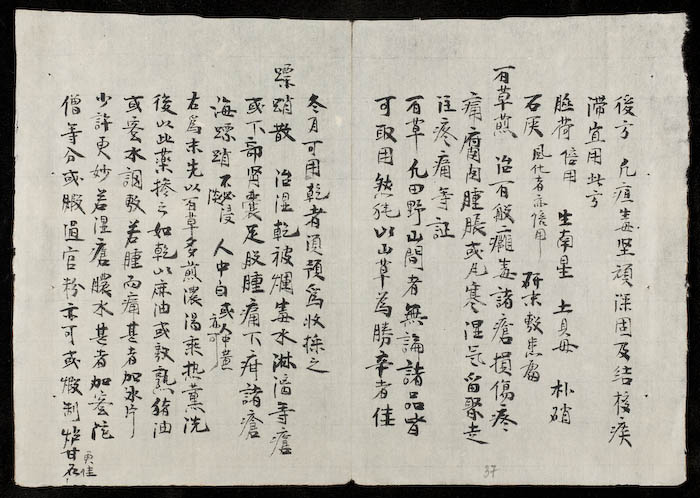 後方 凡疽毒坚頑深固及结核痰
滞宜用此方
脑荷 倍用 生南星 土貝母 朴硝
石灰 風化者亦倍用 研末敷患處
百草煎 治百般癰毒諸瘡損傷疼
痛腐肉腫脹或风寒湿气留聚走
注疼痛等証
百草凡田野山間者無論諸品皆
可取用然犹以山草為勝辛者佳
冬月可用乾者須預為收採之
螵蛸散 治湿乾被爛毒水淋漓等瘡
或下部腎囊足股腫痛下疳諸瘡
海螵蛸 不必浸淡 人中白 或人中黄亦可
右為末先以百草多煎濃湯乘热薰洗
後以此藥摻之如乾以麻油或敷熟猪油
或蜜水調敷若腫而痛甚者加氷片
少許更妙若湿瘡膿水甚者加密陀
僧等分或煅過官粉亦可或煅制炉甘石更佳
37